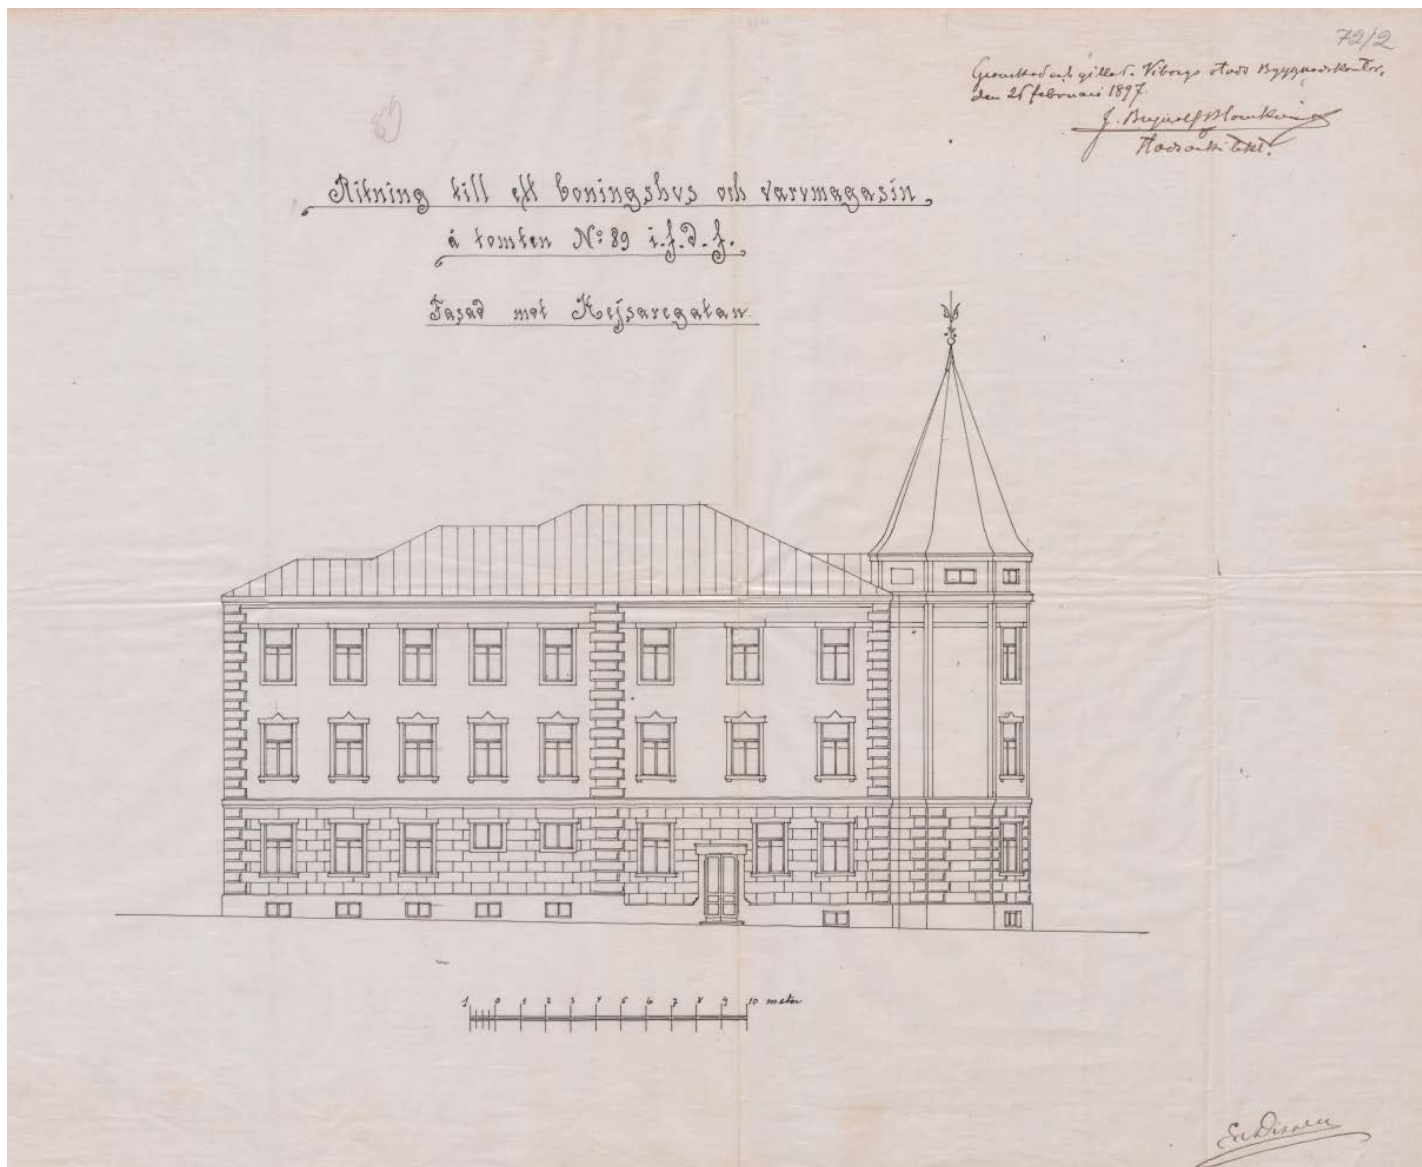 72/2
Granskad och gillad. Viborgs stads Byggnadskontor,
den 26 februari 1897.
J. Brynolf Blomkvist
Stadsarkitekt.
Ritning till ett boningshus och varumagasin
å tomten No: 89 i.f.d.f.
Fasad mot Kejsaregatan.
1 0 1 2 3 4 5 6 7 8 9 10 meter